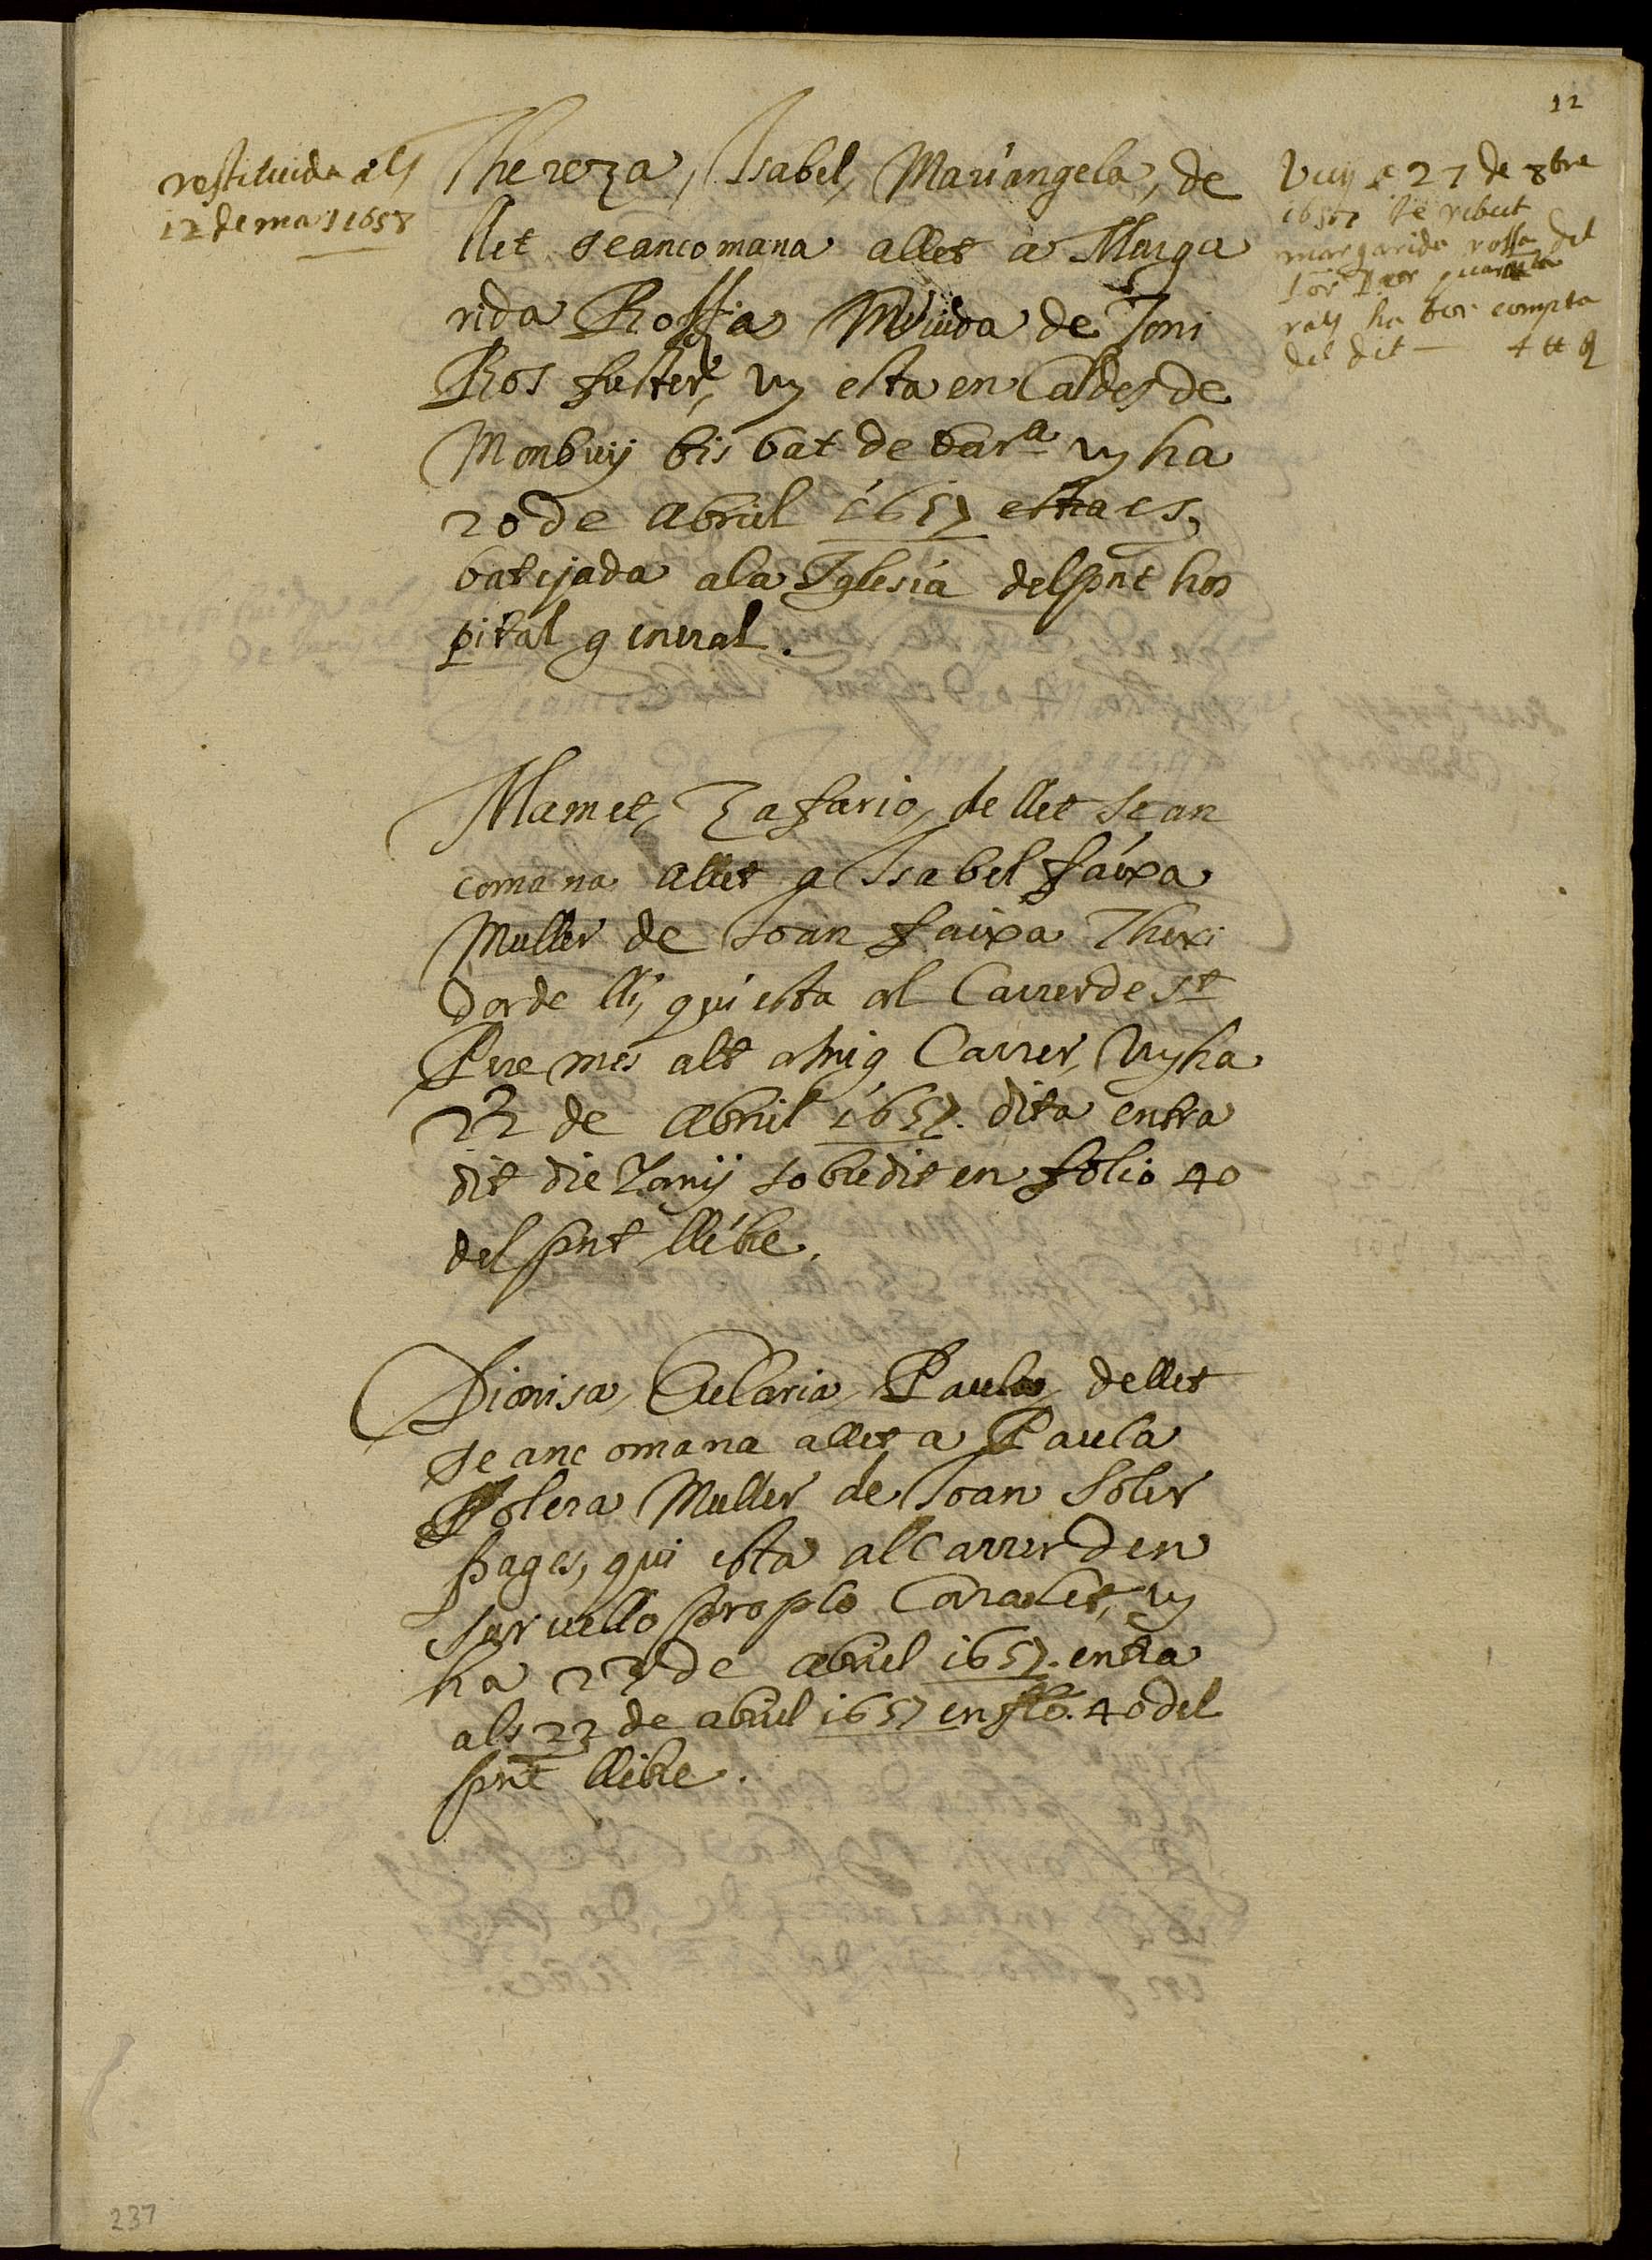 12
restituida als
12 de mars 1658
Thereza, Isabel, Mariangela, de
llet seancomana allet a Marga
rida Rossa Viuda de Toni
Ros fuster, vy esta en Caldes de
Monbuy bisbat de Barª vy ha
20 de Abril 1657 esta es
batejada ala Iglesia del pnt hos
pital general.
Vuy a 27 de 8bre
1657 he rebut
margarida rossa del
Sor Prior quaranta
rals ha bon compta
del dit — 4 ll
Mamet, Zafario, de llet sean
comana allet a Isabel faixa
Muller de Joan faixa Thexi
dor de lli, qui esta al Carrer de St
Pere mes alt al mig Carrer, Vy ha
22 de Abril 1657. dita entra
dit die Lany sobredit en folio 40
del pnt llibre.
Dionisa, Eularia, Paula, de llet
se anc omana allet a Paula
Solera Muller de Joan Soler
pages, qui esta al Carrer den
Seruello prop lo Corralet, vy
ha 22 de abril 1657. entra
als 22 de abril 1657 en flo. 40 del
pnt llibre.
237